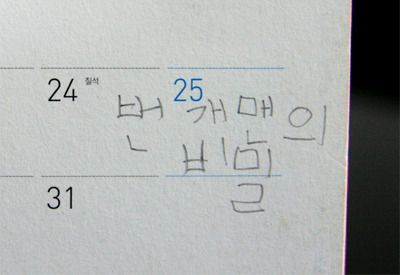 24 칠석 25
번개맨의
비밀
31